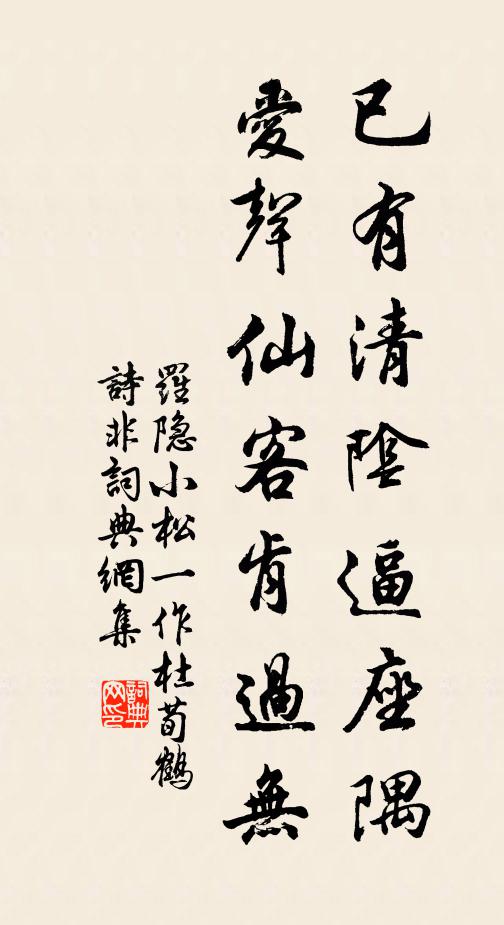 已有清陰逼座隅
愛聲仙客肯過無
羅隐小松一作杜荀鶴
詩非詞典網集
詞典网印